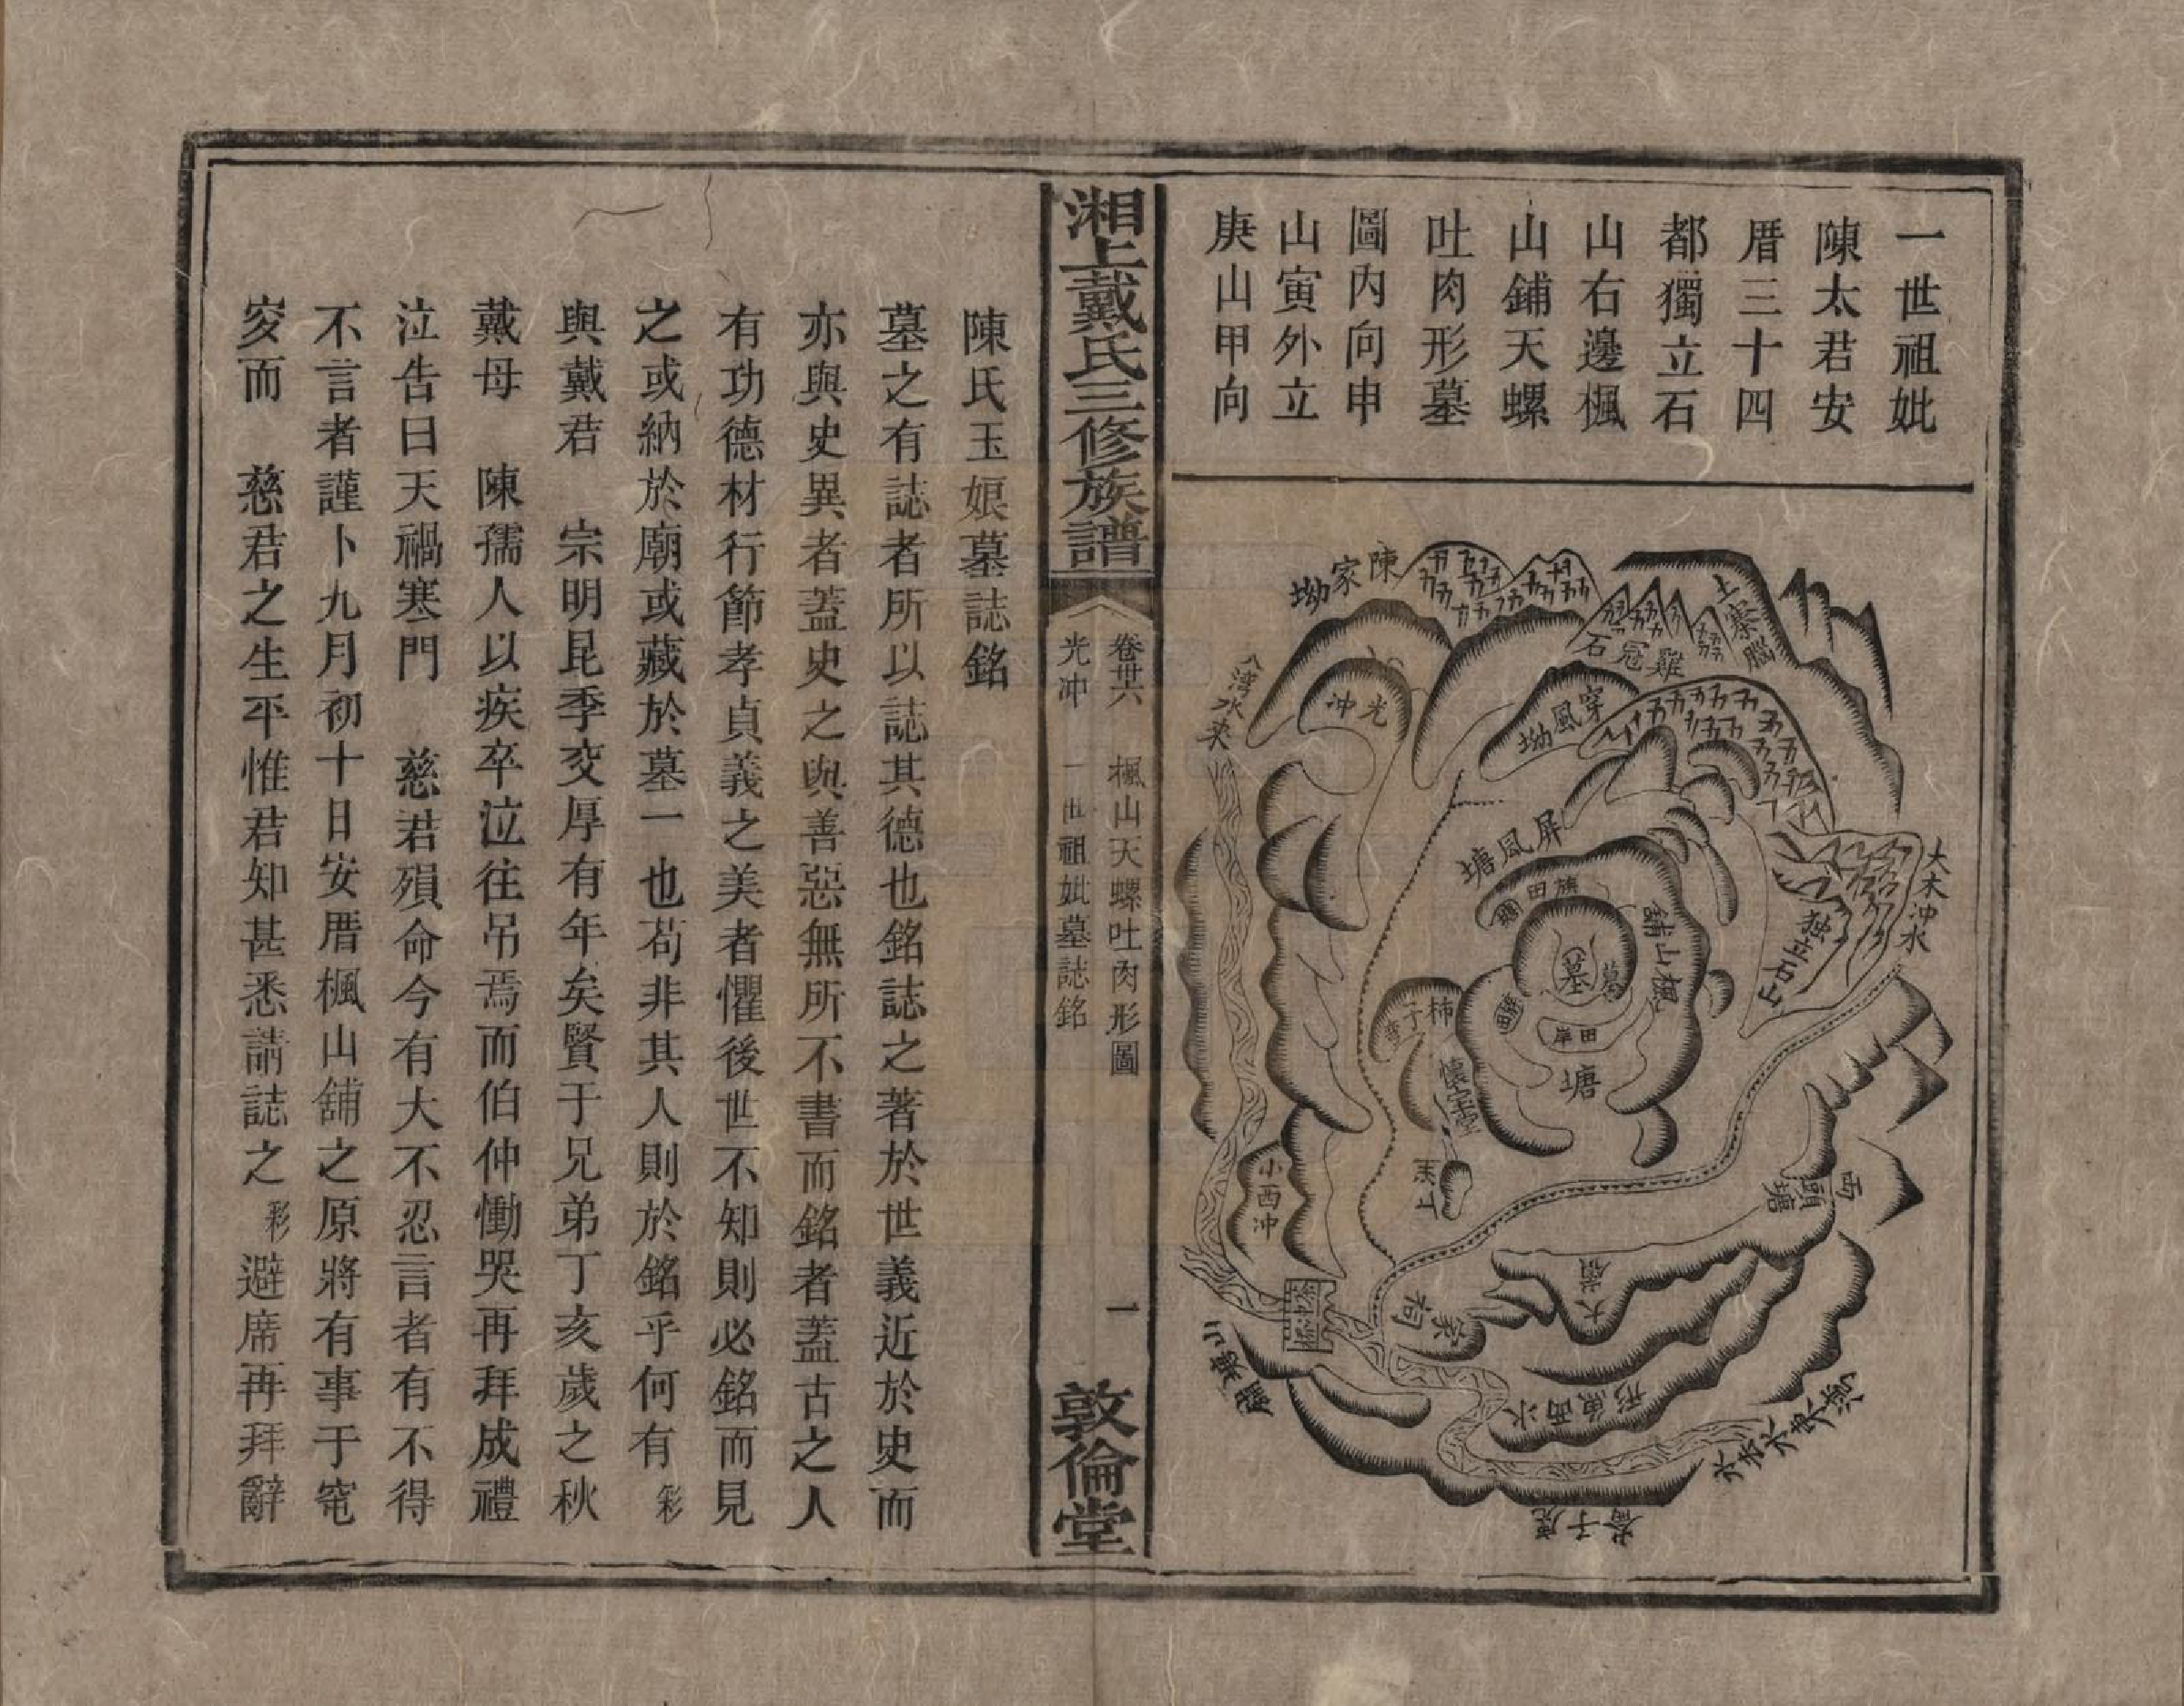 一世祖妣
陳太君安
厝三十四
都獨立石
山右邊楓
山鋪天螺
吐肉形墓
圖內向申
山寅外立
庚山甲向
陳家坳
上寨腦
雞冠石
光冲
穿風坳
八湾水來
屏風塘
旗田
大木沖水
独立石山
鋪山楓
墓
墓
田岸
塘
柿子
懷宝堂
小西冲
两頭塘
湘上戴氏三修族譜
卷卅六　楓山天螺吐肉形圖
光冲　一世祖妣墓誌銘
一
敦倫堂
陳氏玉娘墓誌銘
墓之有誌者所以誌其德也銘誌之著於世義近於史而
亦與史異者蓋史之與善惡無所不書而銘者蓋古之人
有功德材行節孝貞義之美者懼後世不知則必銘而見
之或納於廟或藏於墓一也苟非其人則於銘乎何有彩
與戴君　宗明昆季交厚有年矣賢于兄弟丁亥歲之秋
戴母　陳孺人以疾卒泣往吊焉而伯仲慟哭再拜成禮
泣告曰天禍寒門　慈君殞命今有大不忍言者有不得
不言者謹卜九月初十日安厝楓山舖之原將有事于窀
窆而　慈君之生平惟君知甚悉請誌之彩避席再拜辭